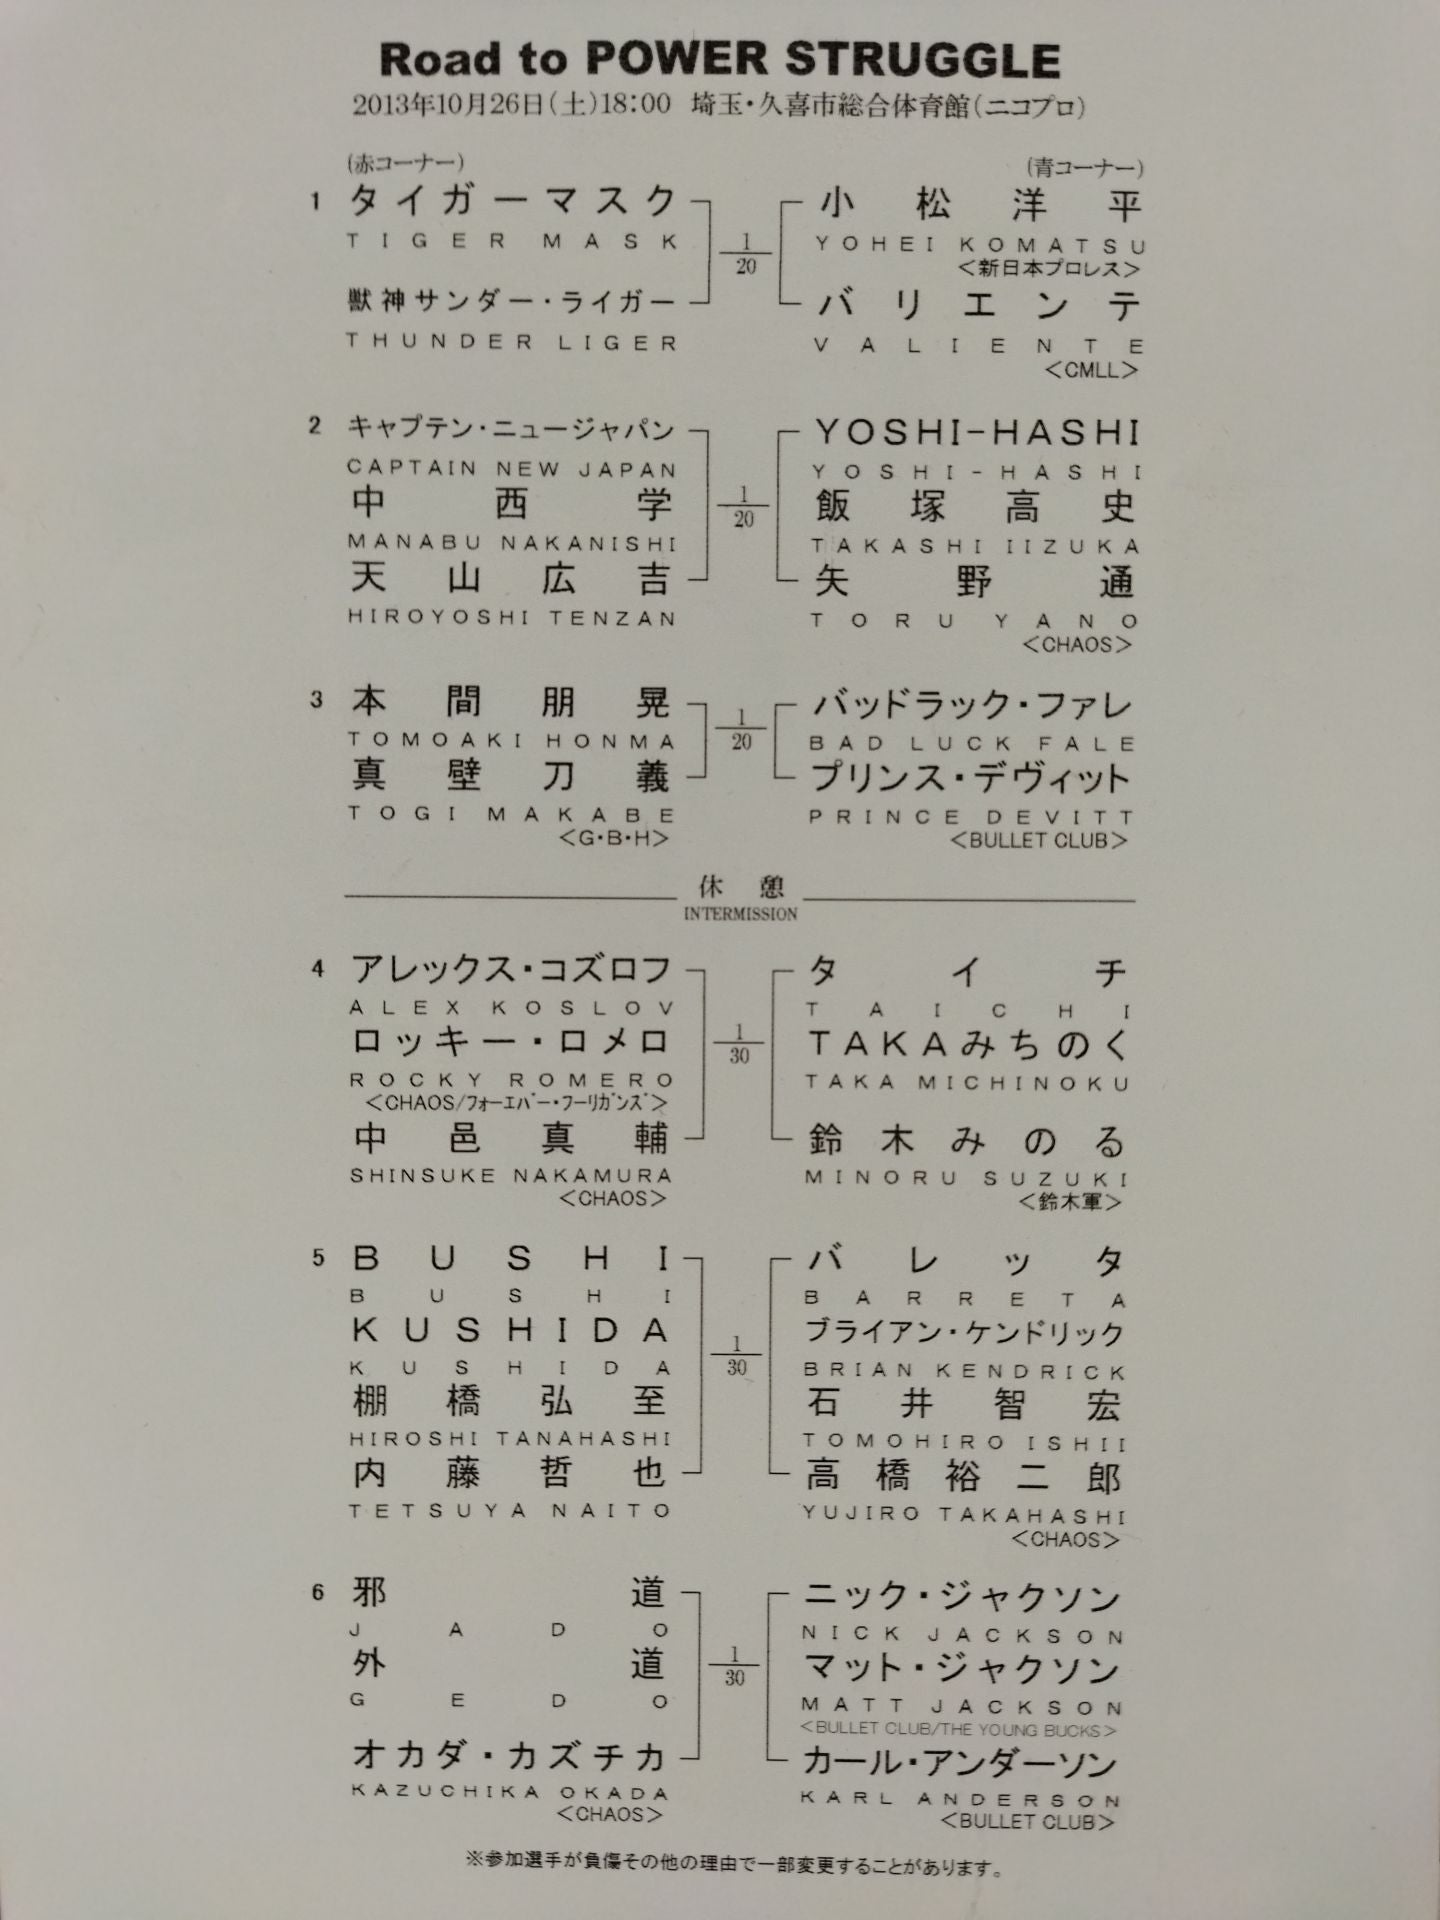 Road to POWER STRUGGLE
2013年10月26日(土)18:00 埼玉・久喜市総合体育館(ニコプロ)
(赤コーナー) (青コーナー)
1 タイガーマスク 1/20 小松洋平
TIGER MASK YOHEI KOMATSU
<新日本プロレス>
獣神サンダー・ライガー バリエンテ
THUNDER LIGER VALIENTE
<CMLL>
2 キャプテン・ニュージャパン 1/20 YOSHI-HASHI
CAPTAIN NEW JAPAN YOSHI-HASHI
中西学 飯塚高史
MANABU NAKANISHI TAKASHI IIZUKA
天山広吉 矢野通
HIROYOSHI TENZAN TORU YANO
<CHAOS>
3 本間朋晃 1/20 バッドラック・ファレ
TOMOAKI HONMA BAD LUCK FALE
真壁刀義 プリンス・デヴィット
TOGI MAKABE PRINCE DEVITT
<G・B・H> <BULLET CLUB>
休憩
INTERMISSION
4 アレックス・コズロフ 1/30 タイチ
ALEX KOSLOV TAICHI
ロッキー・ロメロ TAKAみちのく
ROCKY ROMERO TAKA MICHINOKU
<CHAOS/フォーエバー・フーリガンズ>
中邑真輔 鈴木みのる
SHINSUKE NAKAMURA MINORU SUZUKI
<CHAOS> <鈴木軍>
5 BUSHI 1/30 バレッタ
BUSHI BARRETA
KUSHIDA ブライアン・ケンドリック
KUSHIDA BRIAN KENDRICK
棚橋弘至 石井智宏
HIROSHI TANAHASHI TOMOHIRO ISHII
内藤哲也 高橋裕二郎
TETSUYA NAITO YUJIRO TAKAHASHI
<CHAOS>
6 邪道 1/30 ニック・ジャクソン
JADO NICK JACKSON
外道 マット・ジャクソン
GEDO MATT JACKSON
<BULLET CLUB/THE YOUNG BUCKS>
オカダ・カズチカ カール・アンダーソン
KAZUCHIKA OKADA KARL ANDERSON
<CHAOS> <BULLET CLUB>
※参加選手が負傷その他の理由で一部変更することがあります。